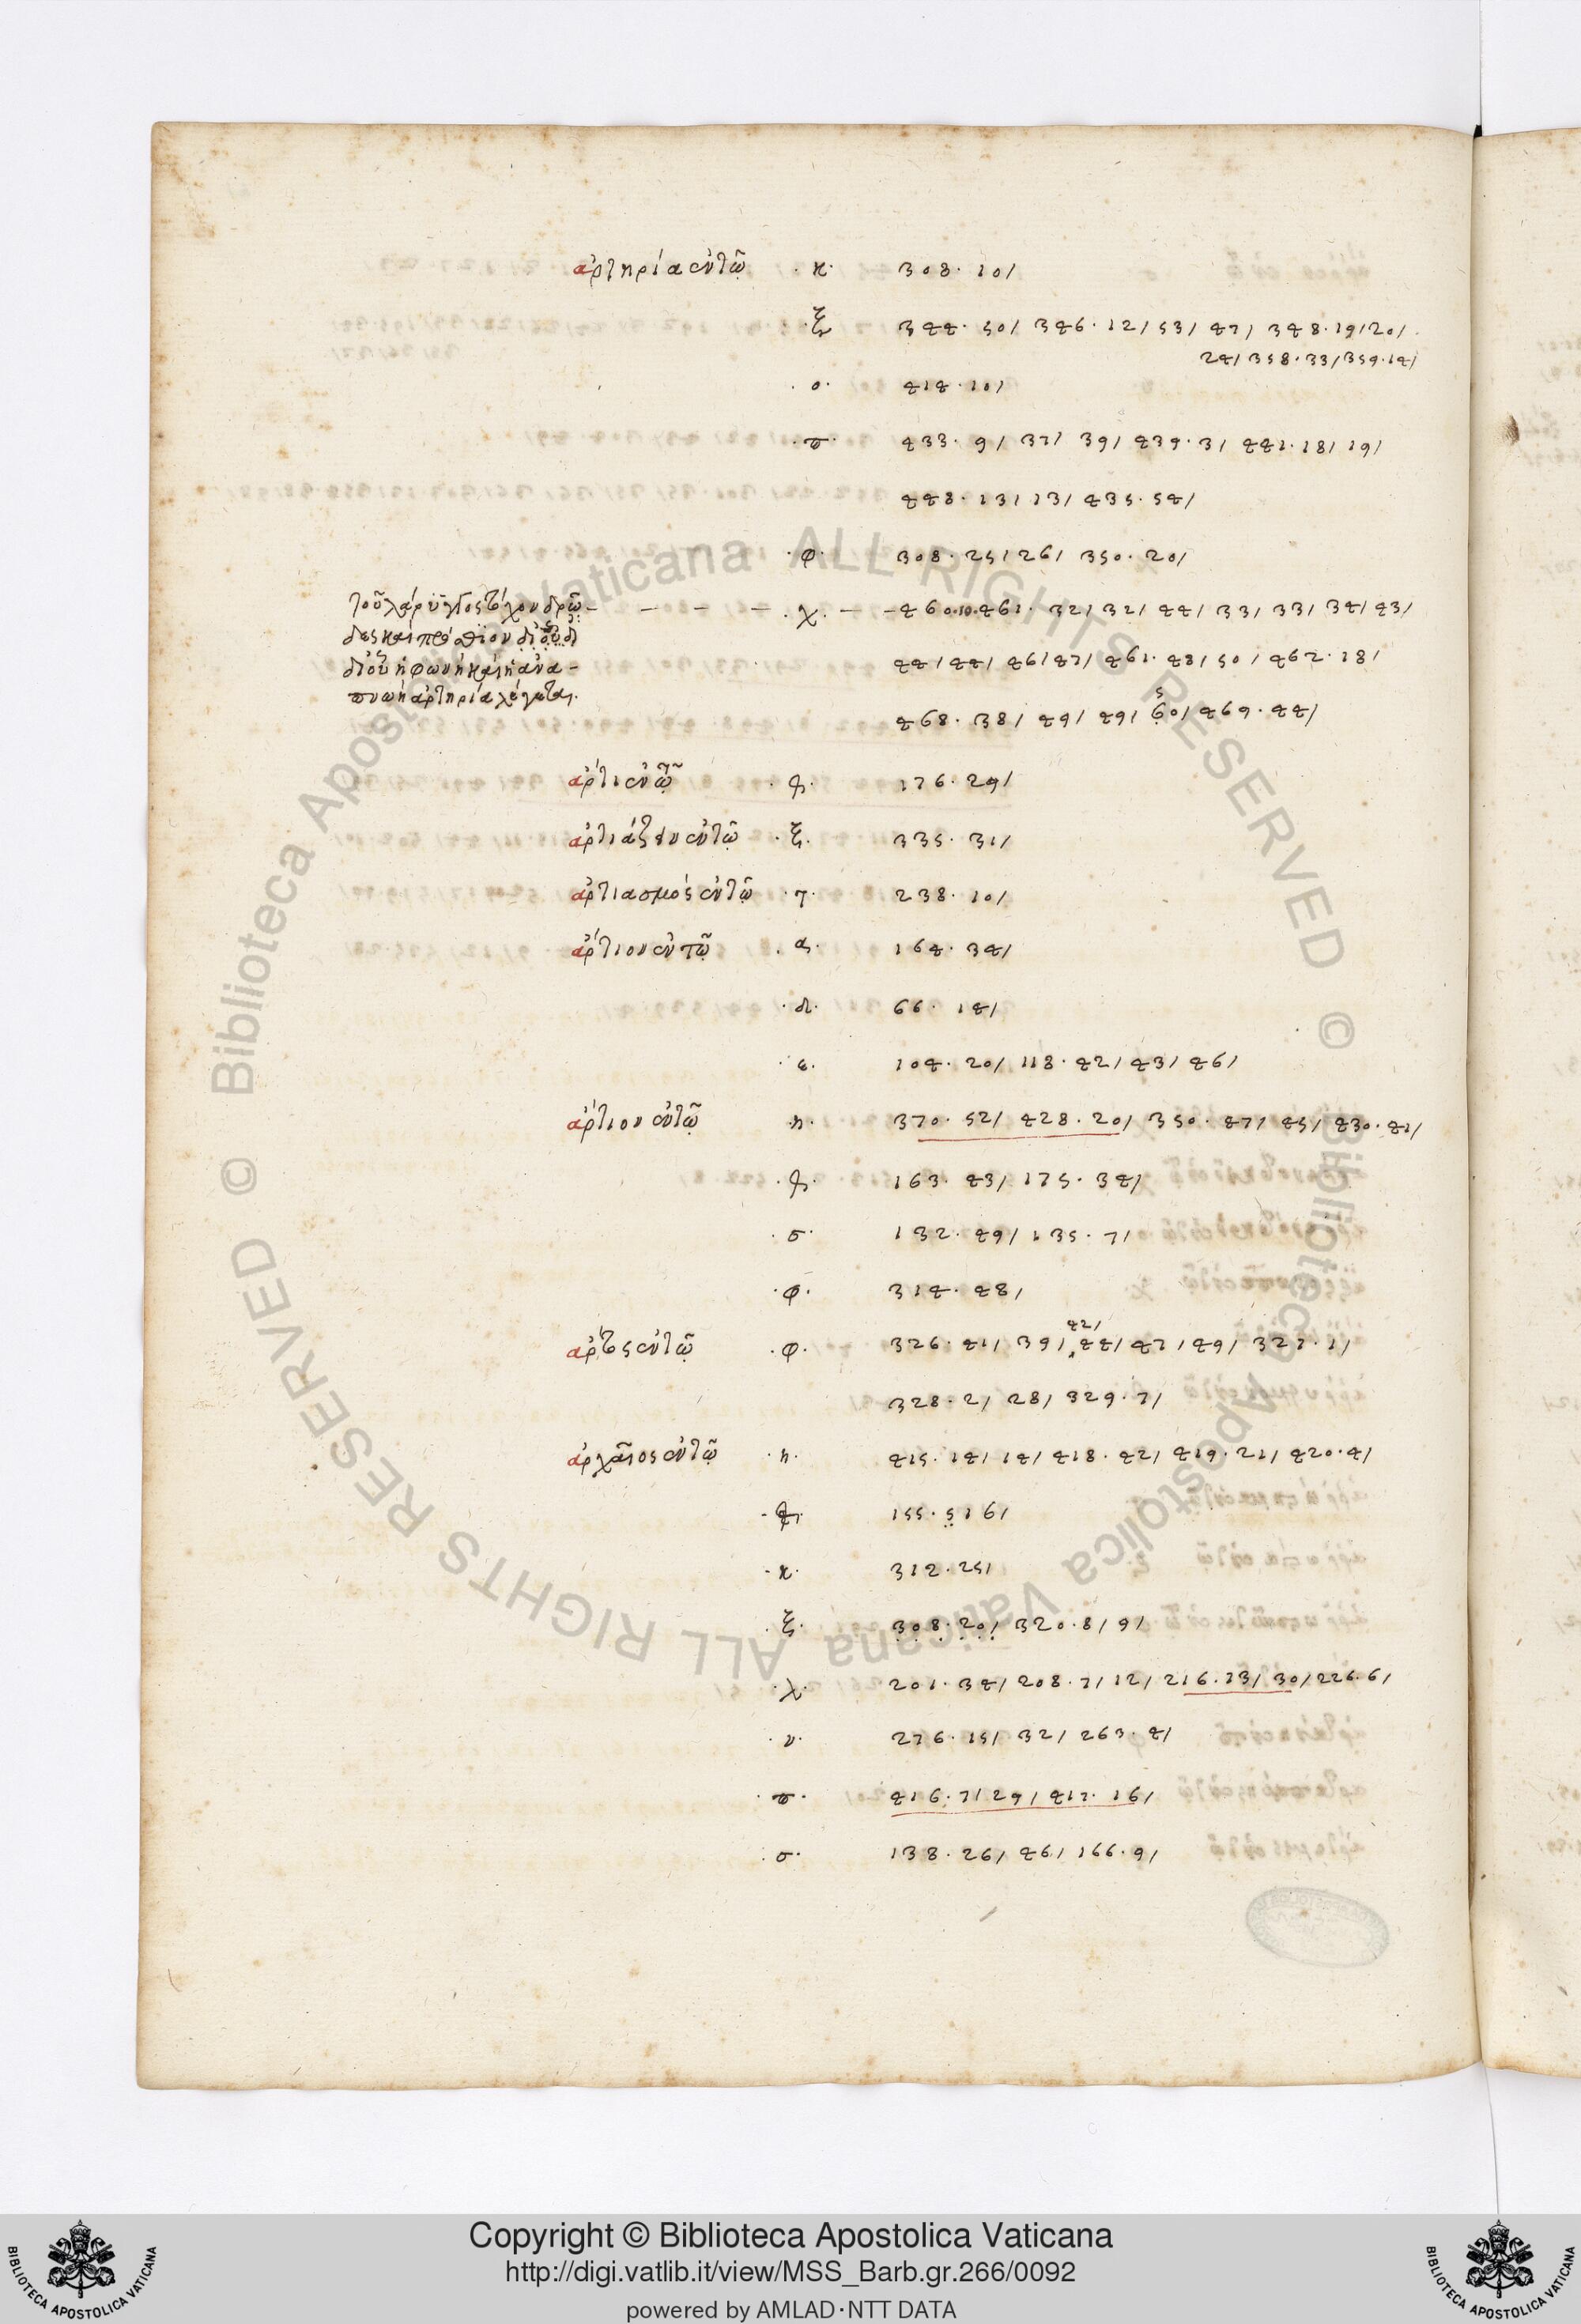 ἀρτηρία ἐν τῷ · κ · 308 · 10/
· ξ 344 · 50/ 346 · 12/ 53/ 47/ 348 · 19/ 20/
24/ 358 · 33/ 359 · 14/
· ο · 414 · 10/
· π · 433 · 9/ 37/ 39/ 439 · 3/ 441 · 18/ 19/
448 · 13/ 13/ 435 · 54/
· φ · 308 · 25/ 26/ 350 · 20/
τοῦ λάρυγγος τέχονδρῶ – – – – – · χ · – – 460 · 10 · 461 · 32/ 32/ 44/ 33/ 33/ 34/ 43/
δες καὶ πρόσθιον
δι οὗ ἡ φωνὴ καὶ ἡ ἀνα – 44/ 44/ 46/ 47/ 461 · 48/ 50/ 462 · 18/
πνοὴ ἀρτηρία λέγεται · 468 · 38/ 49/ 49/ 60/ 469 · 44/
5
ἄρτι ἐν τῷ 176 · 29/
ἀρτιάζειν ἐν τῷ · ξ · 335 · 31/
ἀρτιασμός ἐν τῷ · τ · 238 · 10/
ἄρτιον ἐν τῷ · α · 164 · 34/
· δ · 66 · 14/
· ε · 104 · 20/ 118 · 42/ 43/ 46/
ἄρτιον ἐν τῷ · η · 370 · 52/ 428 · 20/ 350 · 47/ 45/ 430 · 41/
163 · 43/ 175 · 34/
· σ · 132 · 49/ 135 · 7/
· φ · 314 · 48/
42/
ἄρτος ἐν τῷ · φ · 326 · 41/ 39/ 44/ 47/ 49/ 327 · 1/
328 · 2/ 28/ 329 · 7/
ἀρχαῖος ἐν τῷ · η · 415 · 14/ 14/ 418 · 42/ 419 · 21/ 420 · 4/
155 · 5/ 6/
· κ · 312 · 25/
· ξ · 308 · 20/ 320 · 8/ 9/
· λ · 201 · 34/ 208 · 7/ 12/ 216 · 13/ 30/ 226 · 6/
· ν · 276 · 15/ 32/ 263 · 4/
· π · 416 · 7/ 29/ 417 · 16/
· σ · 138 · 26/ 46/ 166 · 9/
© Biblioteca Apostolica Vaticana ALL RIGHTS RESERVED © Biblioteca Apostolica Vaticana ALL RIGHTS RESERVED
Copyright © Biblioteca Apostolica Vaticana
http://digi.vatlib.it/view/MSS_Barb.gr.266/0092
powered by AMLAD · NTT DATA
BIBLIOTECA APOSTOLICA VATICANA
BIBLIOTECA APOSTOLICA VATICANA